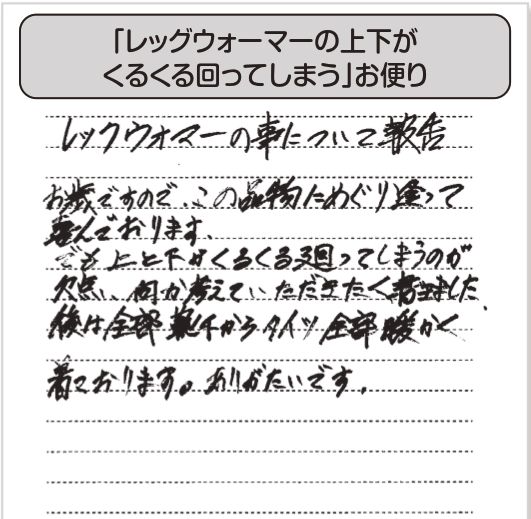 「レッグウォーマーの上下が
くるくる回ってしまう」お便り
レックウォマーの事について報告
お歳ですので、この品物にめぐり逢って
喜んでおります、
でも上と下がくるくる回ってしまうのが
欠点、何か考えていただきたく書きました、
後は全部 からタイツ全部暖かく
着ております。ありがたいです。